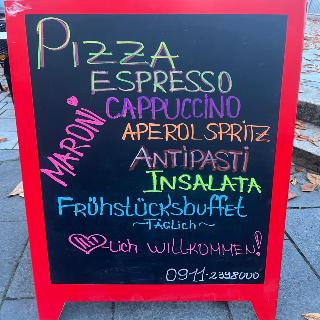 PIZZA
ESPRESSO
CAPPUCCINO
MARONI
APEROL SPRITZ
ANTIPASTI
INSALATA
FRÜHSTÜCKSBUFFET
~TÄGLICH~
-LICH WILLKOMMEN!
0911-2398000